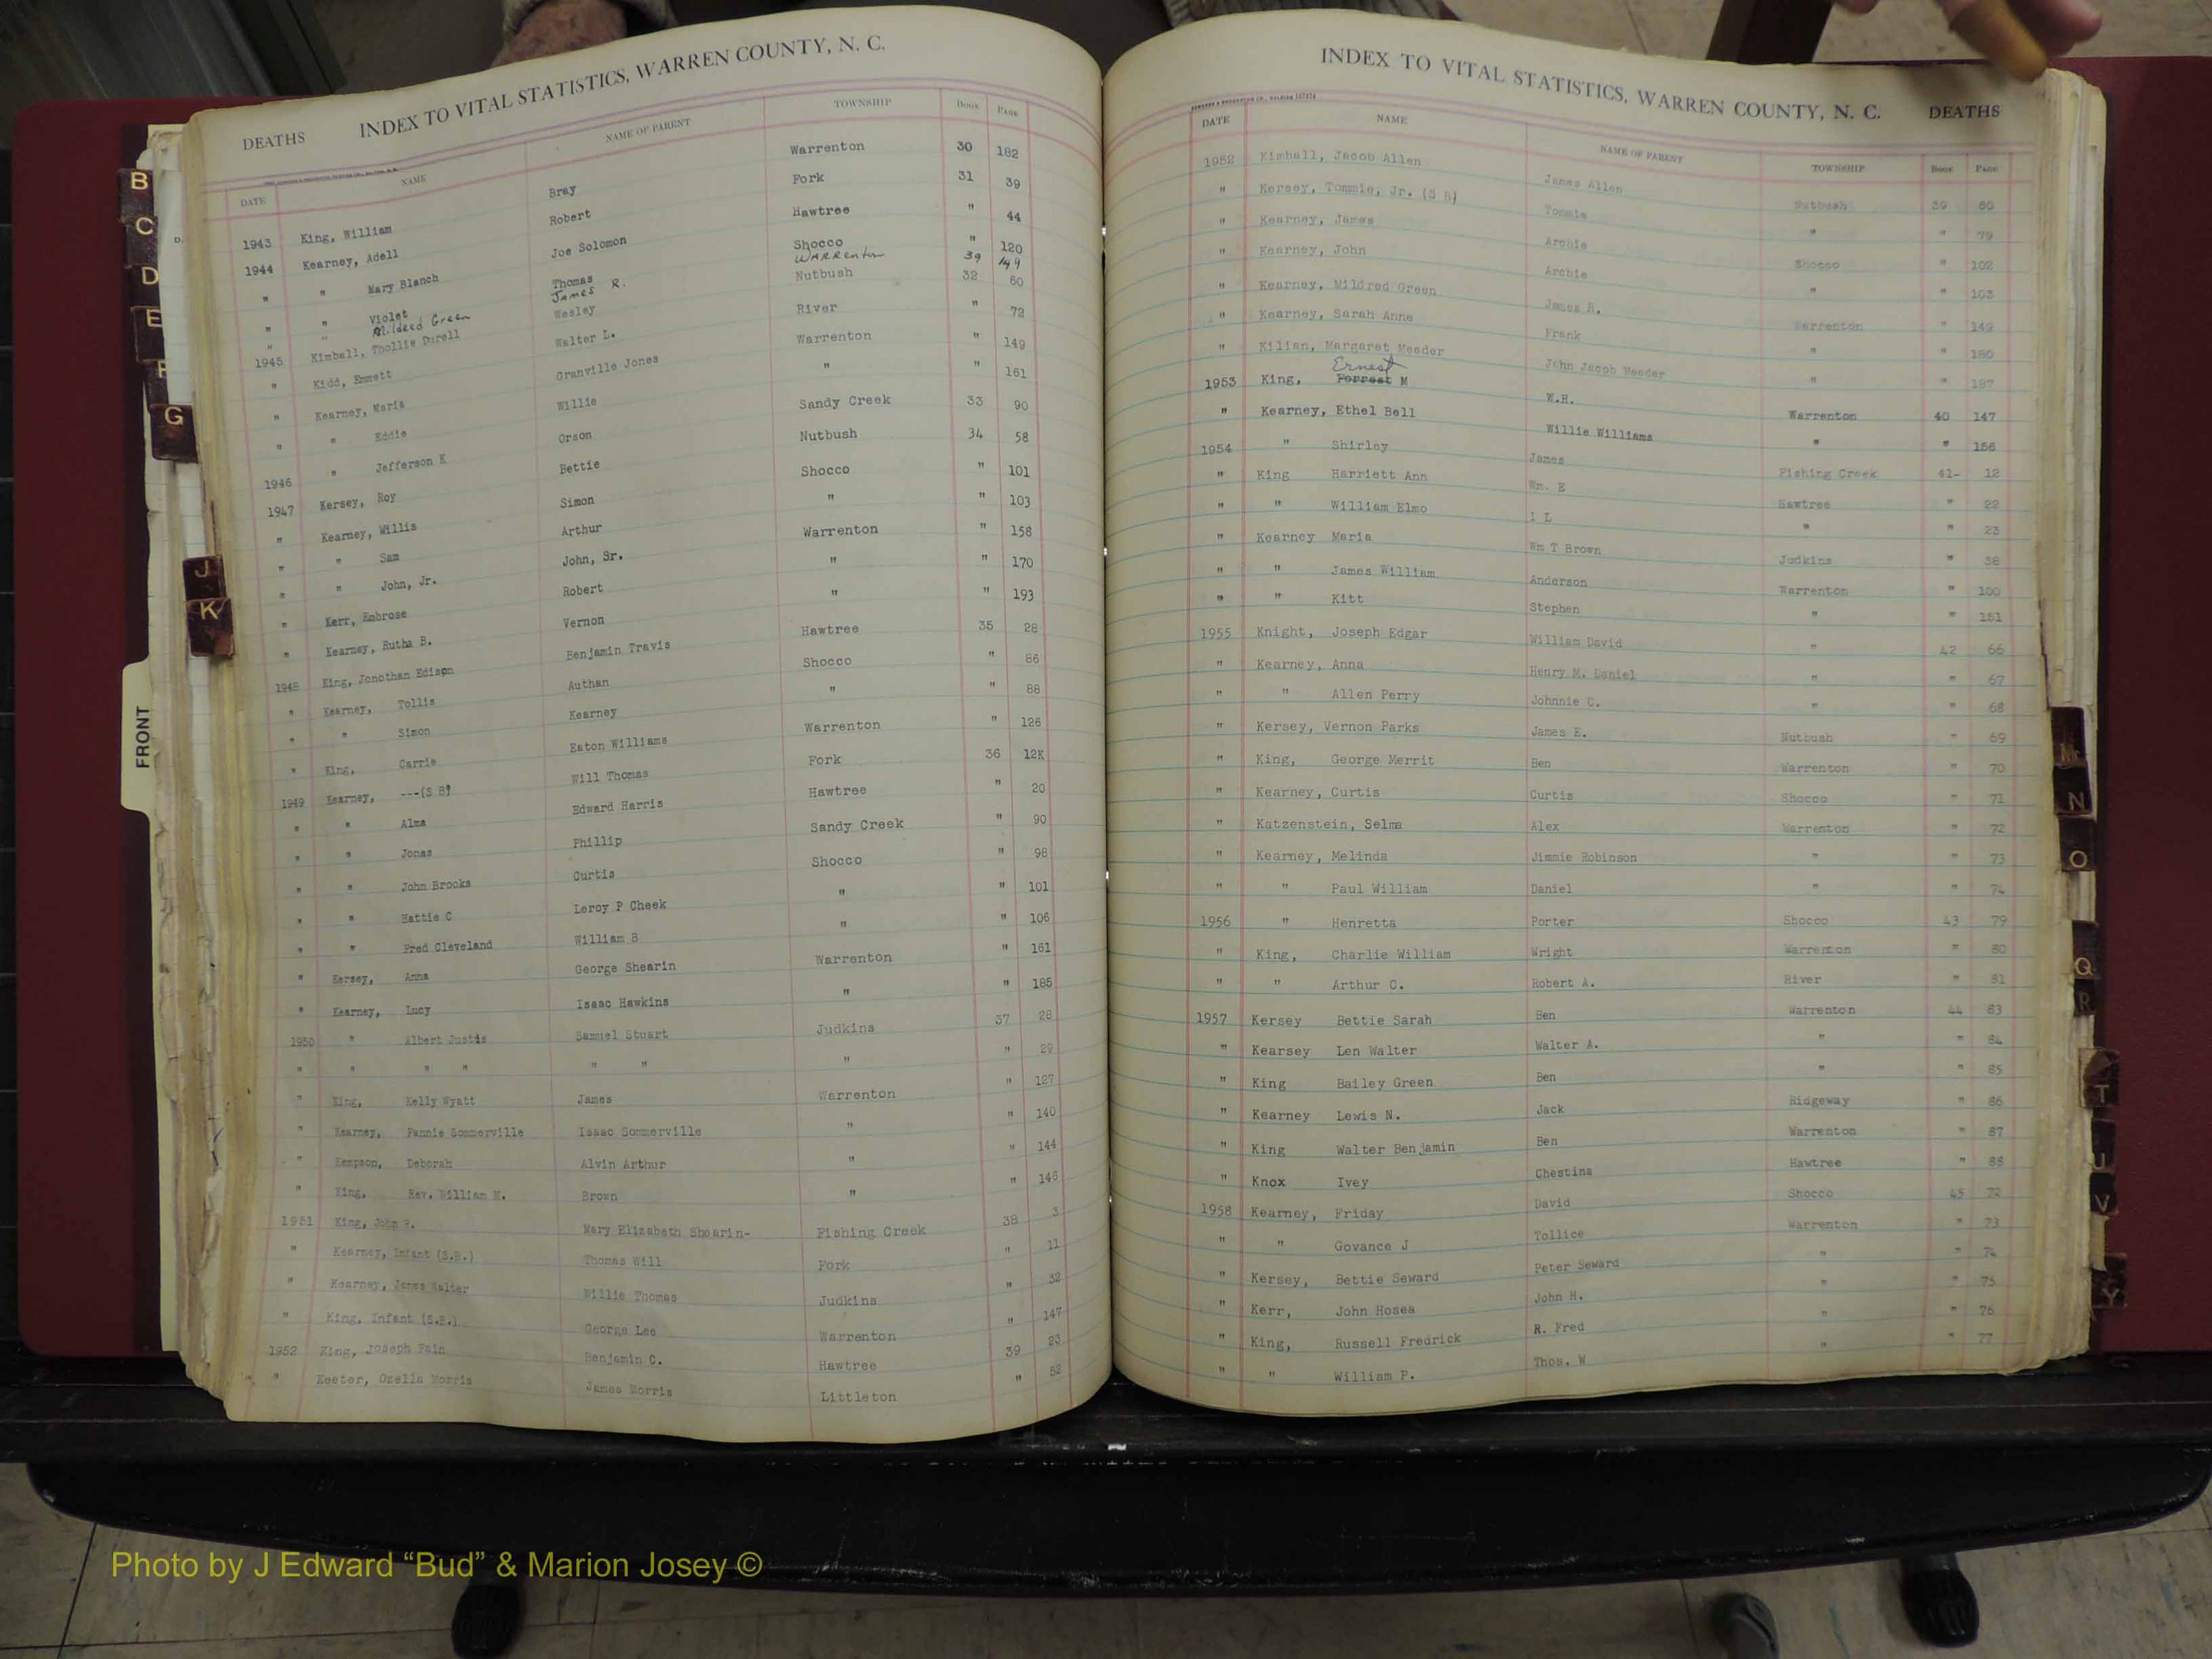 DEATHS INDEX TO VITAL STATISTICS, WARREN COUNTY, N. C.
DATE NAME NAME OF PARENT TOWNSHIP Book Page
1943 King, William Bray Warrenton 30 182
1944 Kearney, Adell Robert Fork 31 39
" " Mary Blanch Joe Solomon Hawtree " 44
" " Violet Thomas Shocco " 120
" " Mildeed Green James R. WARRenton 39 149
1945 Kimball, Thollie Durell Wesley Nutbush 32 60
" Kidd, Emmett Walter L. River " 72
" Kearney, Maria Granville Jones Warrenton " 149
" " Eddie Willie " " 161
1946 " Jefferson K Orson Sandy Creek 33 90
1947 Kersey, Roy Bettie Nutbush 34 58
" Kearney, Willis Simon Shocco " 101
" " Sam Arthur " " 103
" " John, Jr. John, Sr. Warrenton " 158
" Kerr, Embrose Robert " " 170
" Kearney, Rutha B. Vernon " " 193
1948 King, Jonothan Edison Benjamin Travis Hawtree 35 28
" Kearney, Tollis Authan Shocco " 86
" " Simon Kearney " " 88
" King, Carrie Eaton Williams Warrenton " 126
1949 Kearney, ---(S B) Will Thomas Fork 36 12K
" " Alma Edward Harris Hawtree " 20
" " Jonas Phillip Sandy Creek " 90
" " John Brooks Curtis Shocco " 98
" " Hattie C Leroy P Cheek " " 101
" " Fred Cleveland William B " " 106
" Kersey, Anna George Shearin Warrenton " 161
" Kearney, Lucy Isaac Hawkins " " 185
1950 " Albert Justis Samuel Stuart Judkins 37 28
" " " " " " " " 29
" King, Kelly Wyatt James Warrenton " 127
" Kearney, Fannie Sommerville Isaac Sommerville " " 140
" Kempson, Deborah Alvin Arthur " " 144
" King, Rev. William M. Brown " " 146
1951 King, John R. Mary Elizabeth Shearin- Fishing Creek 38 3
" Kearney, Infant (S.B.) Thomas Will Fork " 11
" Kearney, James Walter Willie Thomas Judkins " 32
" King, Infant (S.B.) George Lee Warrenton " 147
1952 King, Joseph Fain Benjamin C. Hawtree 39 23
" Keeter, Ozella Morris James Morris Littleton " 52
INDEX TO VITAL STATISTICS, WARREN COUNTY, N. C. DEATHS
DATE NAME NAME OF PARENT TOWNSHIP Book Page
1952 Kimball, Jacob Allen James Allen Nutbush 39 60
" Kersey, Tommie, Jr. (S B) Tommie " " 79
" Kearney, James Archie Shocco " 102
" Kearney, John Archie " " 103
" Kearney, Mildred Green James R. Warrenton " 149
" Kearney, Sarah Anne Frank " " 180
" Kilian, Margaret Meeder John Jacob Meeder " " 187
Ernest
1953 King, Forrest M W.H. Warrenton 40 147
" Kearney, Ethel Bell Willie Williams " " 156
1954 " Shirley James Fishing Creek 41- 12
" King Harriett Ann Wm. E Hawtree " 22
" " William Elmo I L " " 23
" Kearney Maria Wm T Brown Judkins " 38
" " James William Anderson Warrenton " 100
" " Kitt Stephen " " 151
1955 Knight, Joseph Edgar William David " 42 66
" Kearney, Anna Henry M. Daniel " " 67
" " Allen Perry Johnnie C. " " 68
" Kersey, Vernon Parks James E. Nutbush " 69
" King, George Merrit Ben Warrenton " 70
" Kearney, Curtis Curtis Shocco " 71
" Katzenstein, Selma Alex Warrenton " 72
" Kearney, Melinda Jimmie Robinson " " 73
" " Paul William Daniel " " 74
1956 " Henretta Porter Shocco 43 79
" King, Charlie William Wright Warrenton " 80
" " Arthur C. Robert A. River " 81
1957 Kersey Bettie Sarah Ben Warrenton 44 83
" Kearsey Len Walter Walter A. " " 84
" King Bailey Green Ben " " 85
" Kearney Lewis N. Jack Ridgeway " 86
" King Walter Benjamin Ben Warrenton " 87
" Knox Ivey Chestina Hawtree " 88
1958 Kearney, Friday David Shocco 45 72
" " Govance J Tollice Warrenton " 73
" Kersey, Bettie Seward Peter Seward " " 74
" Kerr, John Hosea John H. " " 75
" King, Russell Fredrick R. Fred " " 76
" " William P. Thos. W " " 77
B
C
D
E
F
G
J
K
FRONT
Mc
N
O
Q
R
T
U
V
Y
Photo by J Edward “Bud” & Marion Josey ©